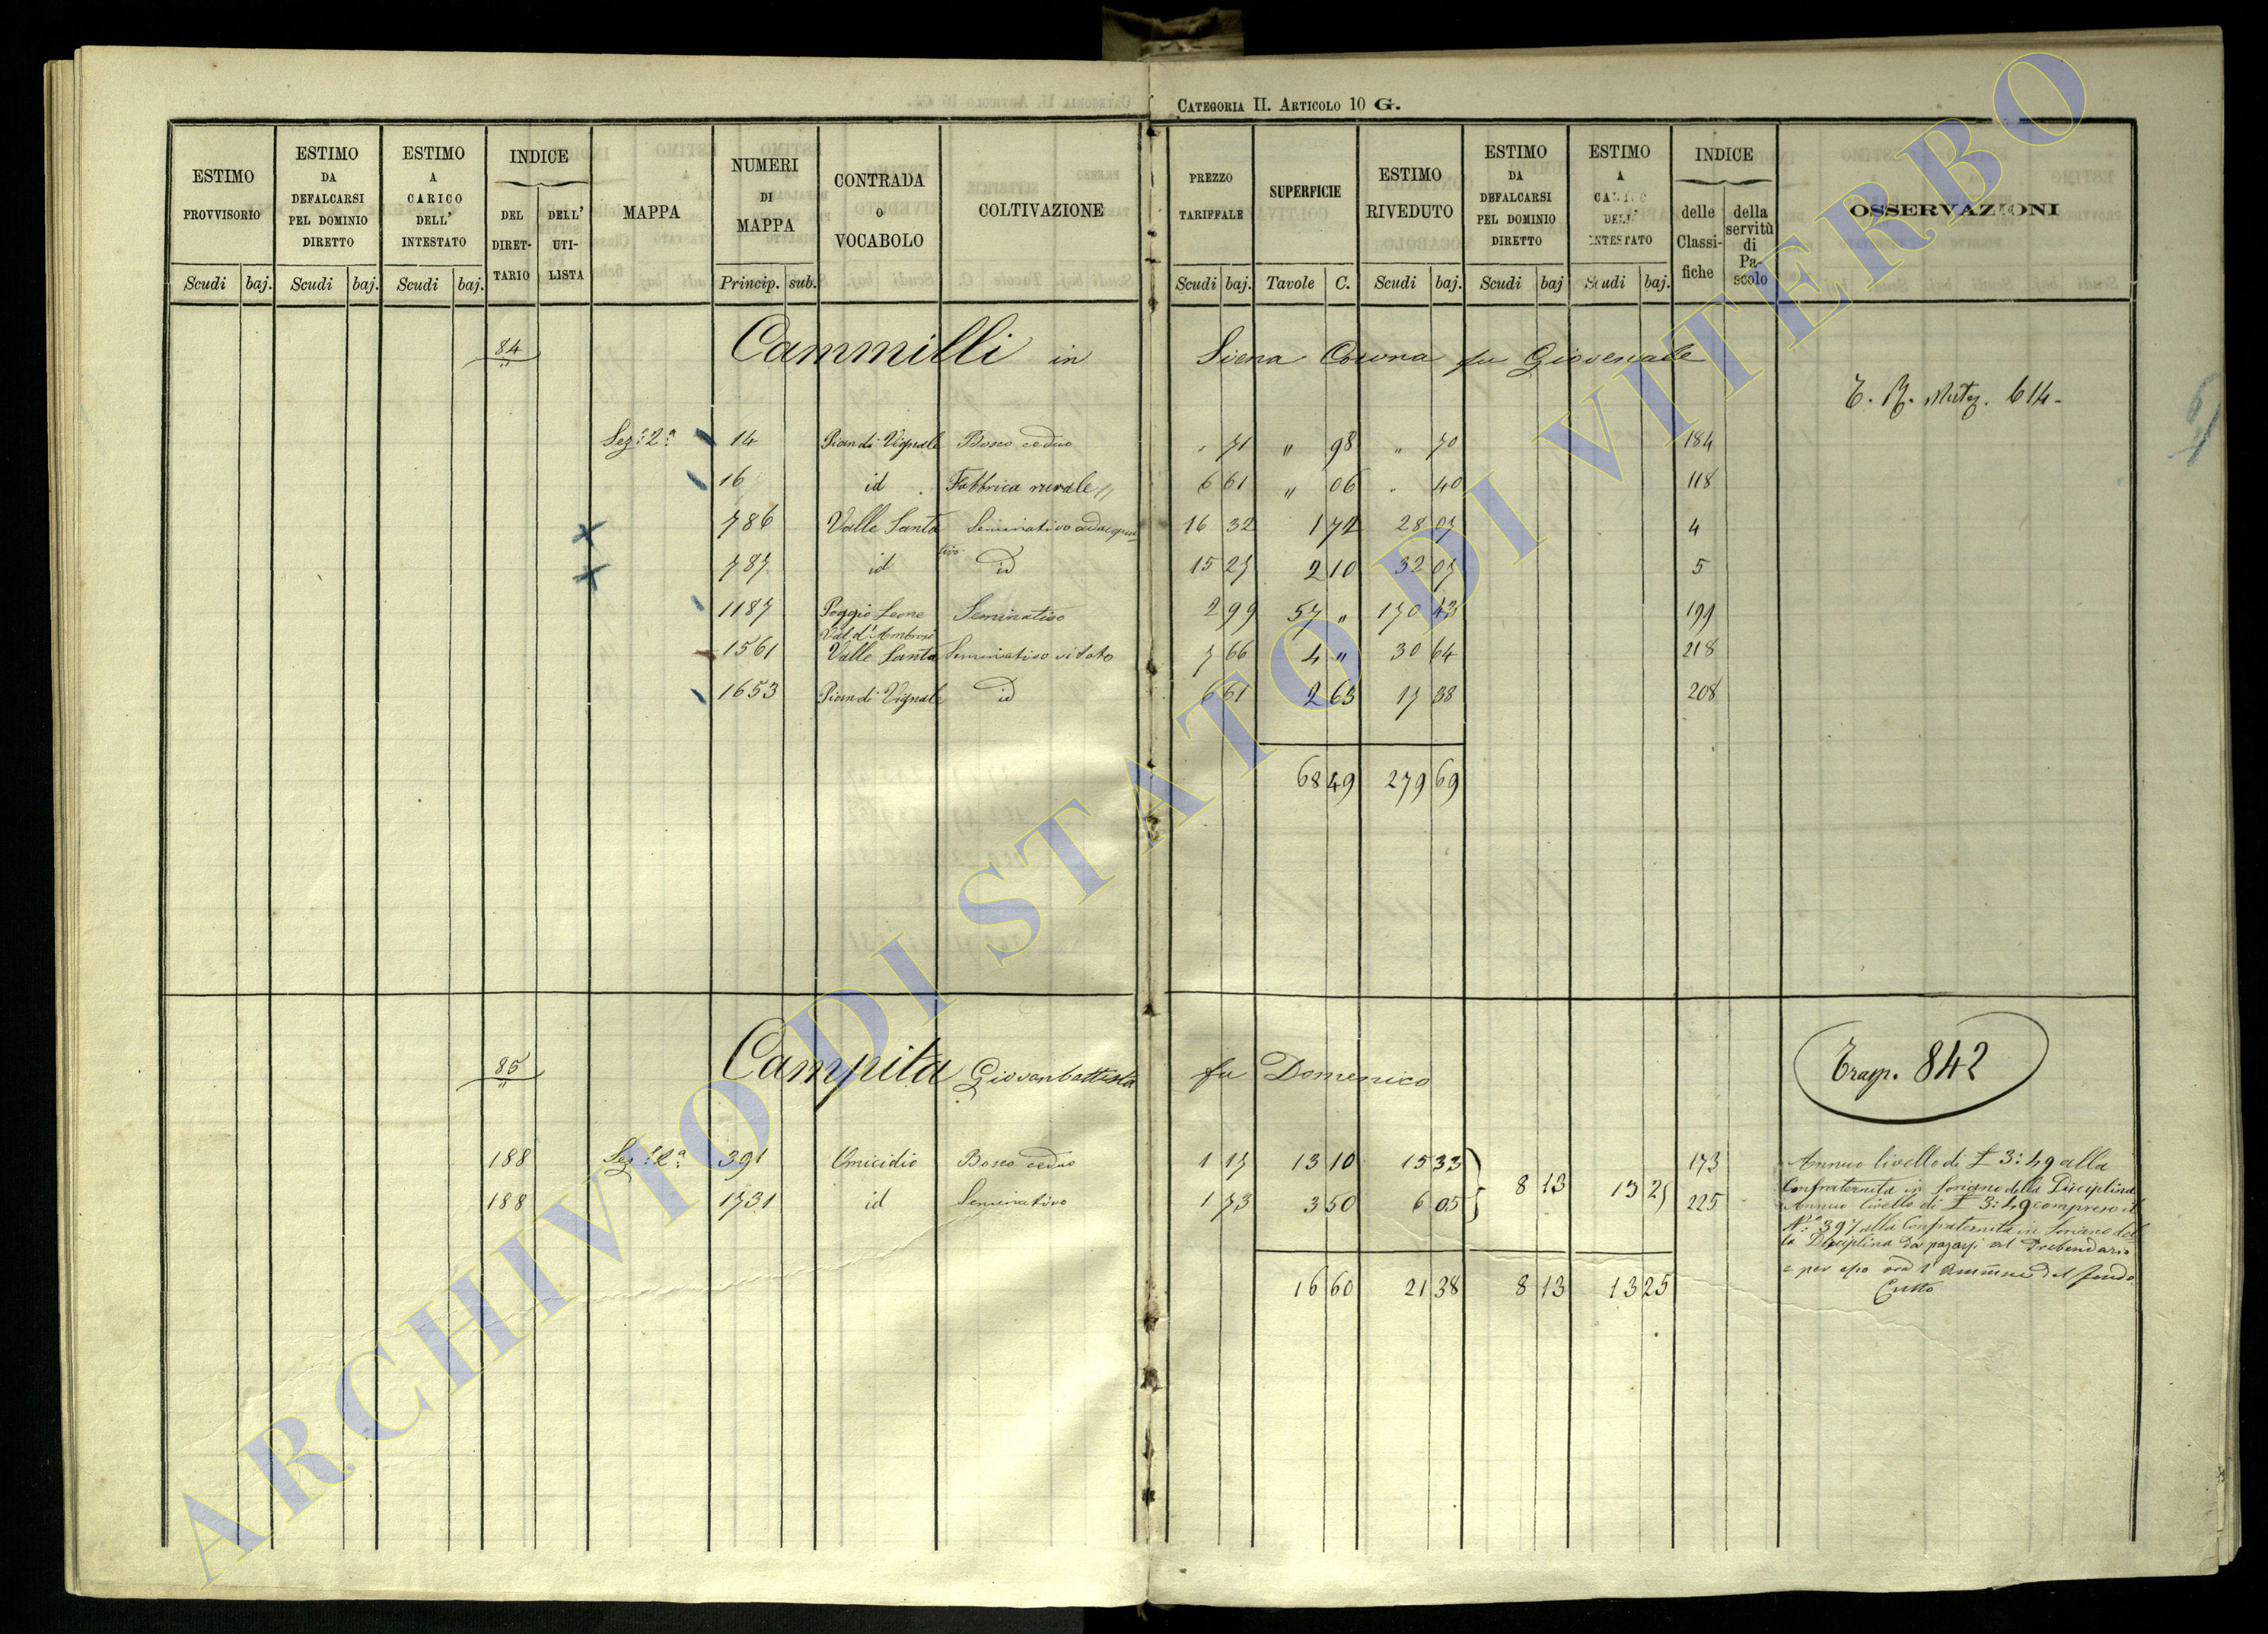 CATEGORIA II. ARTICOLO 10 G.
ESTIMO PROVVISORIO | ESTIMO DA DEFALCARSI PEL DOMINIO DIRETTO | ESTIMO A CARICO DELL' INTESTATO | INDICE DEL DIRETTARIO | DELL' UTILISTA | MAPPA | NUMERI DI MAPPA | CONTRADA O VOCABOLO | COLTIVAZIONE | PREZZO TARIFFALE | SUPERFICIE | ESTIMO RIVEDUTO | ESTIMO DA DEFALCARSI PEL DOMINIO DIRETTO | ESTIMO A CARICO DELL' INTESTATO | INDICE delle Classifiche | della servitù di Pascolo | OSSERVAZIONI
Scudi baj. Scudi baj. Scudi baj. Princip. sub. Scudi baj. Tavole C. Scudi baj. Scudi baj Scudi baj.
84 Cammilli in Siena Corona fu Giovenale
T. R. Mutaz. 614
Sez: 2a 14 Pian di Vignale Bosco ceduo " 71 " 98 " 70 184
16 id Fabbrica rurale 6 61 " 06 " 40 118
786 Valle Santa Seminativo adacquativo 16 32 1 72 28 07 4
787 id id 15 27 2 10 32 07 5
1187 Poggio Leone Seminativo 2 99 57 " 170 43 199
Val d'Ambrosi
1561 Valle Santa Seminativo vitato 7 66 4 " 30 64 218
1653 Pian di Vignale id 6 61 2 63 17 38 208
68 49 279 69
85 Campita Giovanbattista fu Domenico
Trasp. 842
188 Sez: 2a 391 Omicidio Bosco ceduo 1 17 13 10 15 33 8 13 13 25 173
188 1731 id Seminativo 1 73 3 50 6 05 225
Annuo livello di £ 3:49 alla
Confraternita in Soriano della Disciplina
Annuo livello di £ 3:49 compreso il
N.° 397 alla Confraternita in Soriano del
la Disciplina da pagarsi al Prebendario
e per esso ora l'Ammne del fondo
Culto
16 60 21 38 8 13 13 25
ARCHIVIO DI STATO DI VITERBO